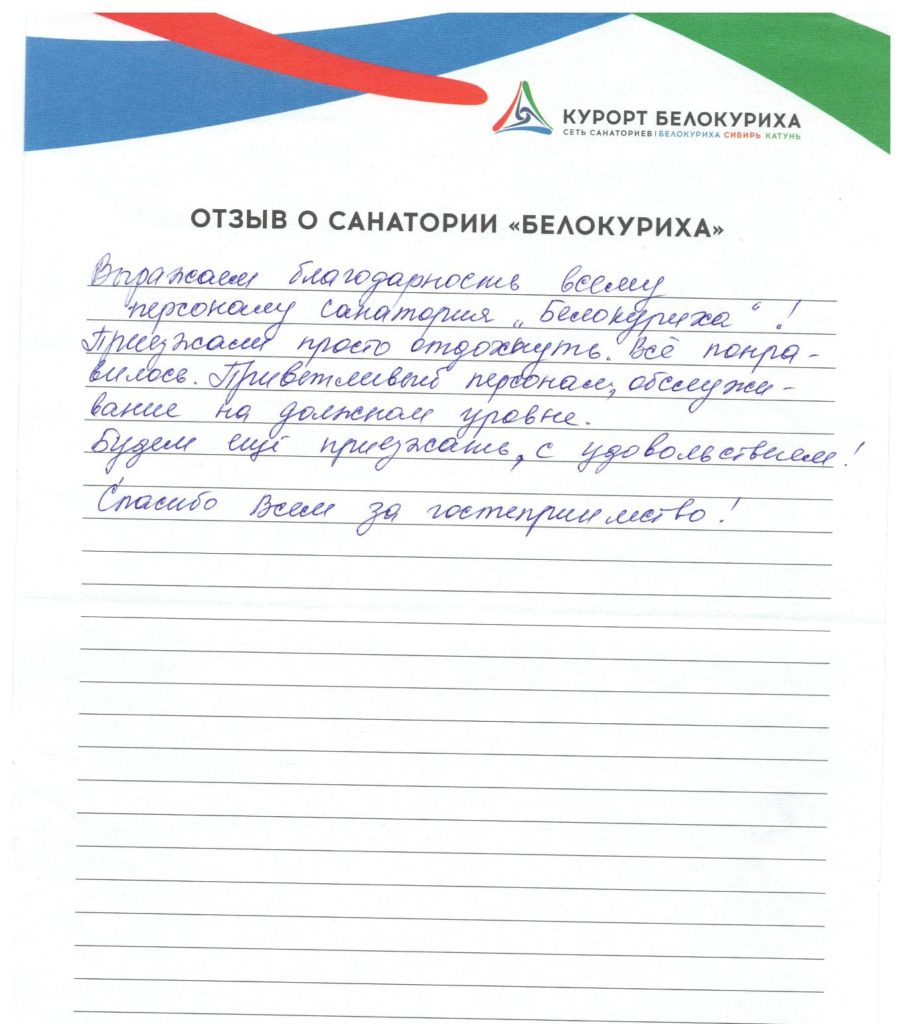 КУРОРТ БЕЛОКУРИХА
СЕТЬ САНАТОРИЕВ | БЕЛОКУРИХА СИБИРЬ КАТУНЬ
ОТЗЫВ О САНАТОРИИ «БЕЛОКУРИХА»
Выражаем благодарность всему
персоналу санатория „Белокуриха“!
Приезжали просто отдохнуть. Всё понра-
вилось. Приветливый персонал, обслужи-
вание на должном уровне.
Будем ещё приезжать, с удовольствием!
Спасибо Всем за гостеприимство!